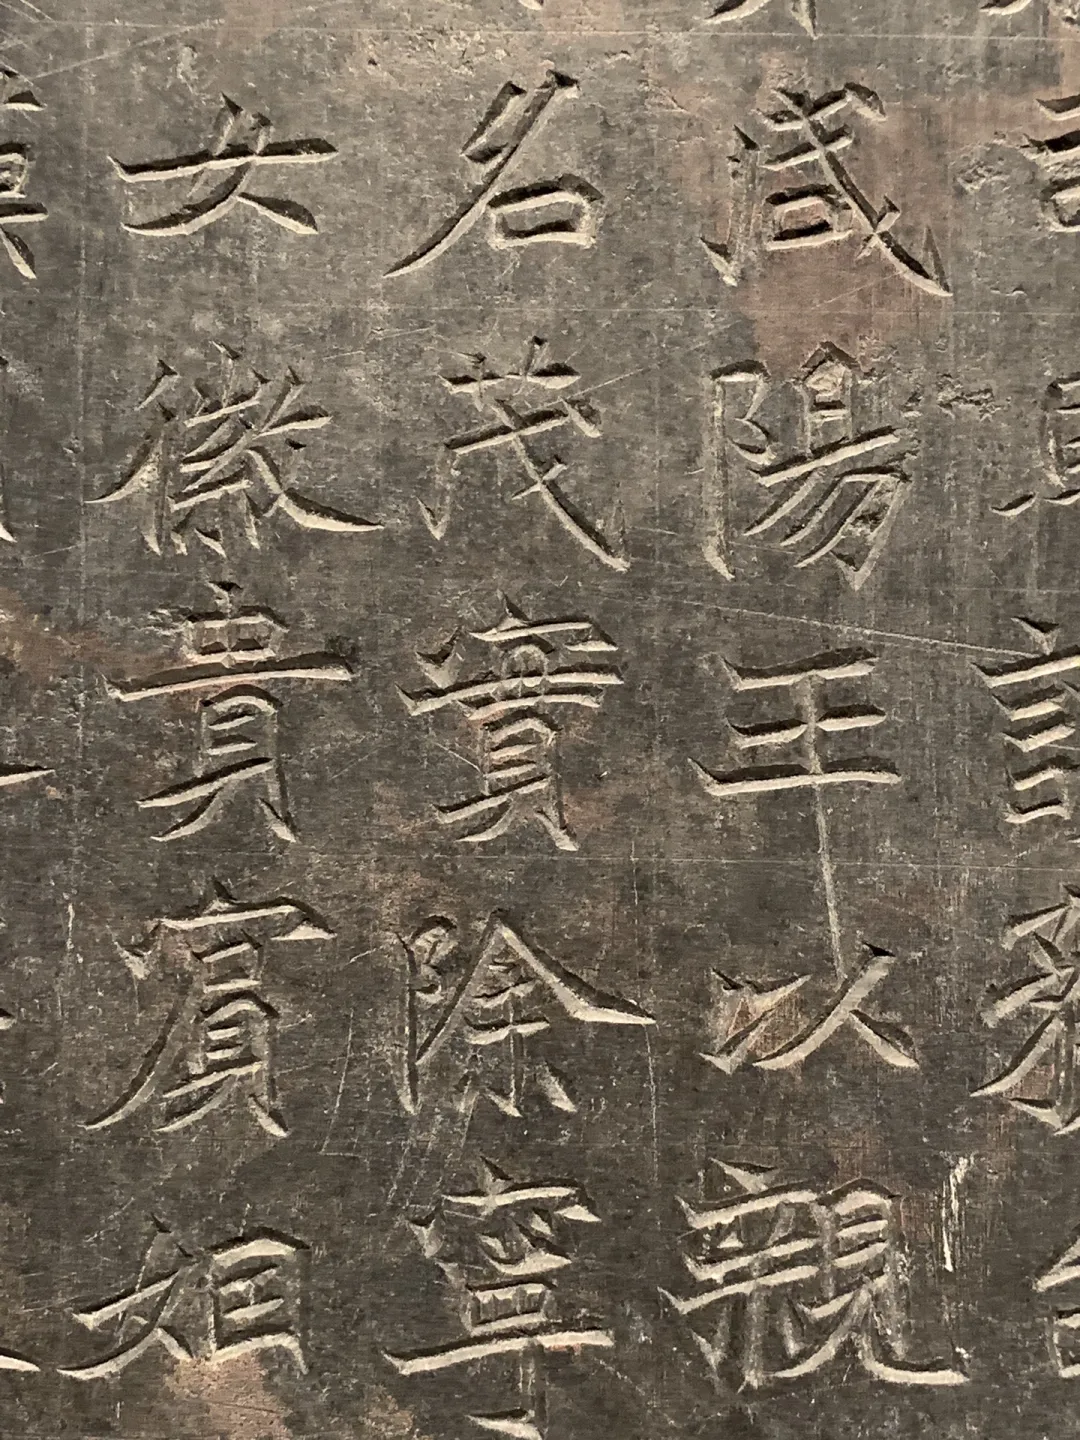 咸陽王以親
名茂實除寧
女徽貴賓姬